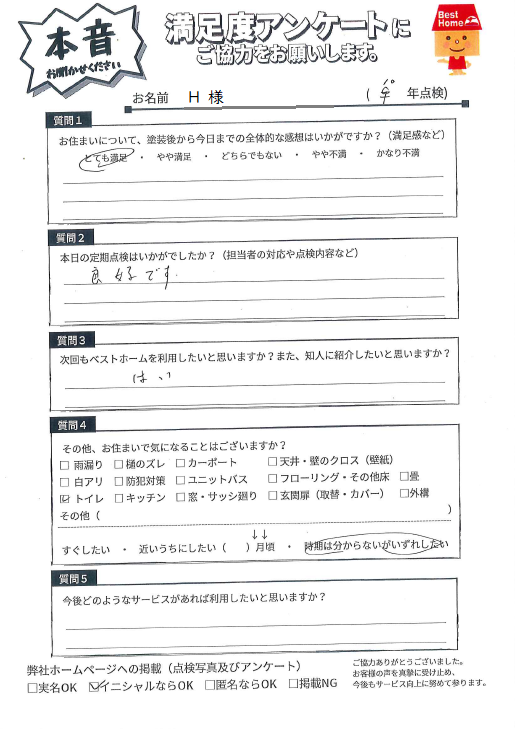 本音
お聞かせください
満足度アンケートに
ご協力をお願いします。
Best Home
お名前 H 様
( 年点検)
質問1
お住まいについて、塗装後から今日までの全体的な感想はいかがですか?(満足感など)
とても満足 ・ やや満足 ・ どちらでもない ・ やや不満 ・ かなり不満
質問2
本日の定期点検はいかがでしたか?(担当者の対応や点検内容など)
良好です.
質問3
次回もベストホームを利用したいと思いますか?また、知人に紹介したいと思いますか?
はい
質問4
その他、お住まいで気になることはございますか?
□ 雨漏り □ 樋のズレ □ カーポート □ 天井・壁のクロス(壁紙)
□ 白アリ □ 防犯対策 □ ユニットバス □ フローリング・その他床 □畳
☑ トイレ □ キッチン □ 窓・サッシ廻り □ 玄関扉(取替・カバー) □外構
その他( )
↓↓
すぐしたい ・ 近いうちにしたい( )月頃 ・ 時期は分からないがいずれしたい
質問5
今後どのようなサービスがあれば利用したいと思いますか?
弊社ホームページへの掲載(点検写真及びアンケート)
□実名OK ☑イニシャルならOK □匿名ならOK □掲載NG
ご協力ありがとうございました。
お客様の声を真摯に受け止め、
今後もサービス向上に努めて参ります。